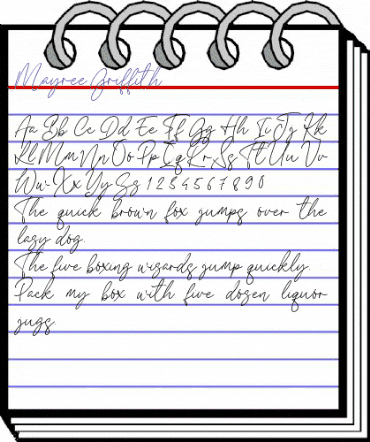 Mayree Griffith
Aa Bb Cc Dd Ee Ff Gg Hh Ii Jj Kk
Ll Mm Nn Oo Pp Qq Rr Ss Tt Uu Vv
Ww Xx Yy Zz 1 2 3 4 5 6 7 8 9 0
The quick brown fox jumps over the
lazy dog.
The five boxing wizards jump quickly.
Pack my box with five dozen liquor
jugs